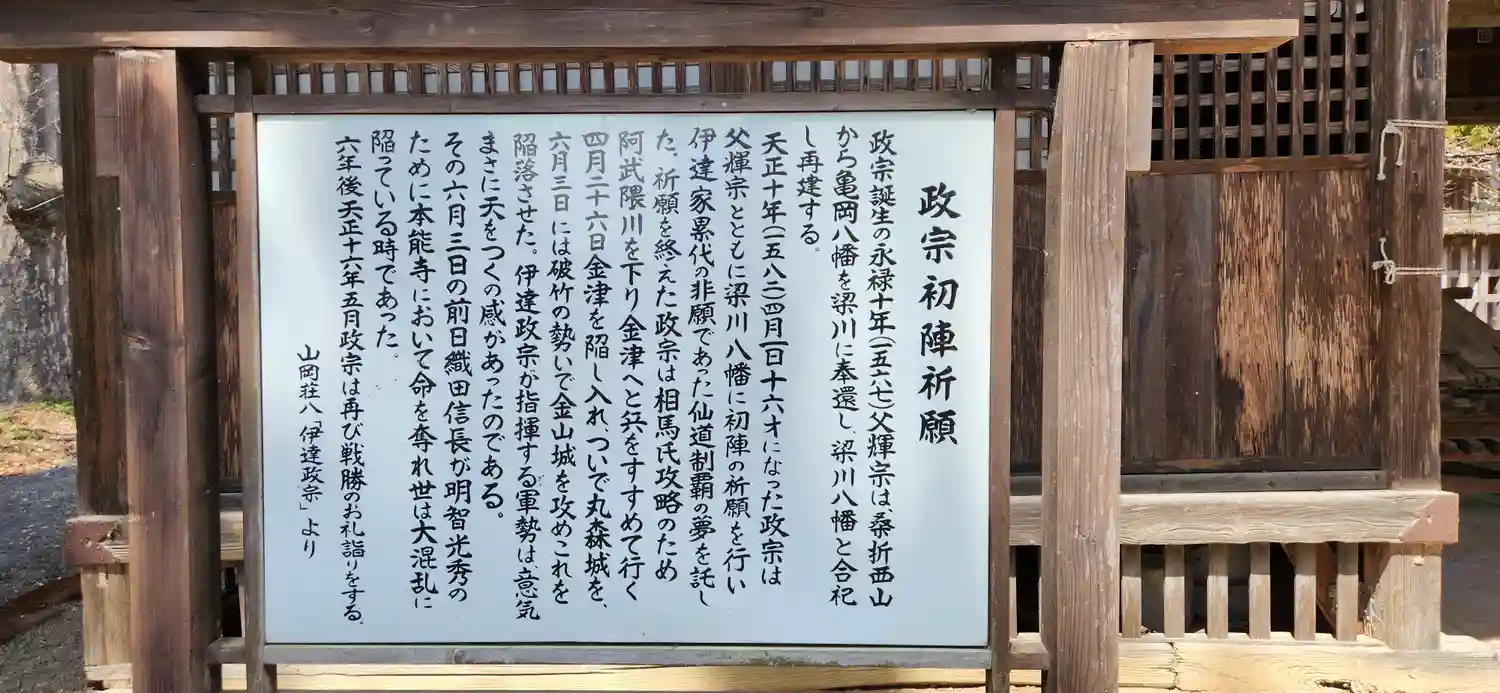 政宗初陣祈願
政宗誕生の永禄十年(一五六七)父輝宗は、桑折西山
から亀岡八幡を梁川に奉還し、梁川八幡と合祀
し再建する。
天正十年(一五八二)四月一日十六才になった政宗は
父輝宗とともに梁川八幡に初陣の祈願を行い
伊達家累代の非願であった仙道制覇の夢を託し
た。祈願を終えた政宗は相馬氏攻略のため
阿武隈川を下り金津へと兵をすすめて行く
四月二十六日金津を陥し入れ、ついで丸森城を、
六月三日には破竹の勢いで金山城を攻めこれを
陥落させた。伊達政宗が指揮する軍勢は、意気
まさに天をつくの感があったのである。
その六月三日の前日織田信長が明智光秀の
ために本能寺において命を奪れ世は大混乱に
陥っている時であった。
六年後天正十六年五月政宗は再び戦勝のお礼詣りをする。
山岡荘八「伊達政宗」より